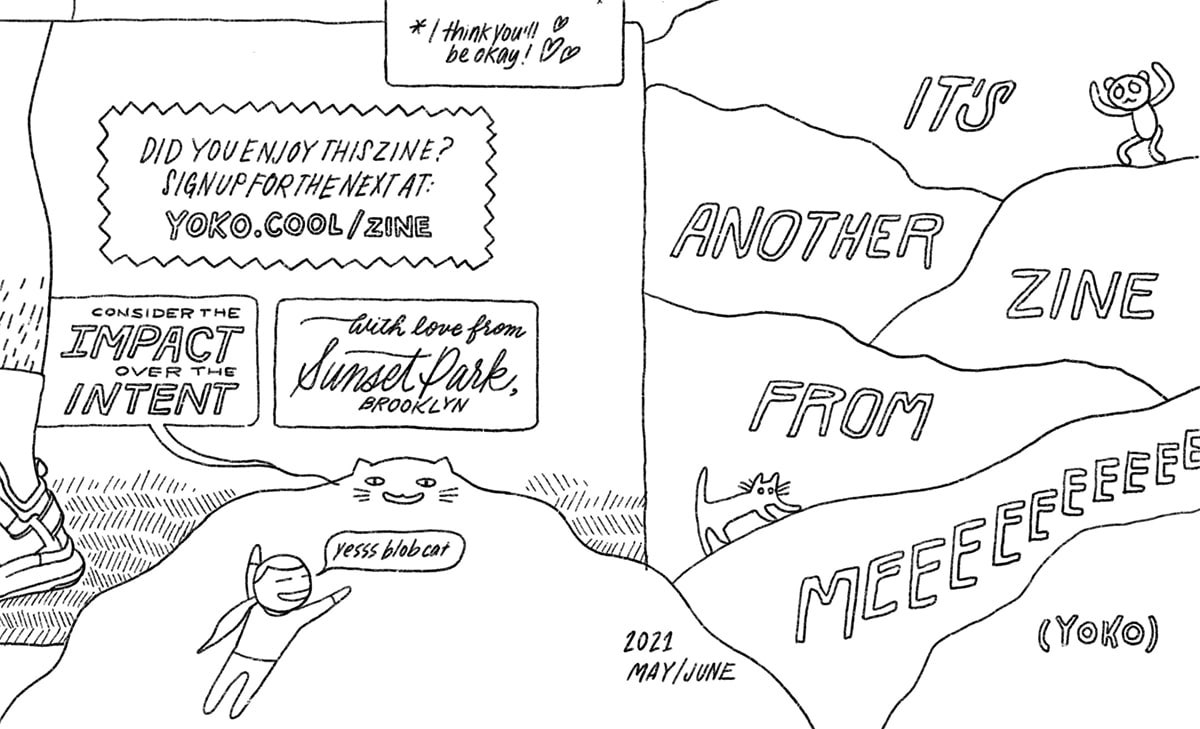 *I think you'll
be okay!
DID YOU ENJOY THIS ZINE?
SIGN UP FOR THE NEXT AT:
YOKO.COOL/ZINE
CONSIDER THE
IMPACT
OVER THE
INTENT
With love from
Sunset Park,
BROOKLYN
yesss blob cat
2021
MAY/JUNE
IT'S
ANOTHER
ZINE
FROM
MEEEEEEEEEEE
(YOKO)